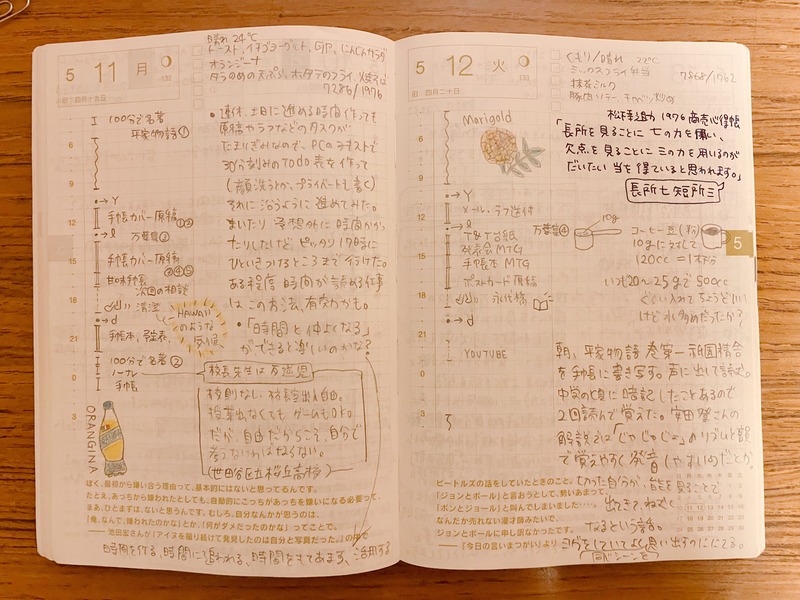 5 11 月
131
旧:四月十九日
晴れ 24℃
トースト、イチゴヨーグルト、GJP、にんじんサラダ
オランジーナ
タラのめの天ぷら、ホタテのフライ、焼そば
7286/1976
6
9
12
15
18
21
0
3
100分で名著
平家物語①
Y
手帳カバー原稿①②
万葉集②
手帳カバー原稿
③④⑤
次回の相談
d
100分で名著②
手帳
HAWAII
のような
気候
ORANGINA
●連休、土日に進める時間作っても
原稿やラフなどのタスクが
たまりぎみなので、PCのテキストで
30分刻みのTodo表を作って
(顔洗うとか、プライベートも書く)
それに沿うように進めてみた。
まいたり予想外に時間かかっ
たりしたけど、ピッタリ17時に
ひといきつけるところまで行けた。
ある程度時間が読める仕事
は、この方法、有効かも。
●「時間と仲よくなる」
ができると楽しいのかな?
校長先生は
校則なし
授業出なくてもゲームもOK。
だが、自由だからこそ、自分で
考えないればならない。
(世田谷区立桜丘
ぼく、最初から嫌い合う理由って、基本的にはないと思ってるんです。
たとえ、あっちから嫌われたとしても、自動的にこっちがあっちを嫌いになる必要って、
まあ、ひとまずは、ないと思うんです。むしろ、自分なんかが思うのは、
「俺、なんで、嫌われたのかな」とか、「何がダメだったのかな」ってことで。
──池田宏さんが『アイヌを撮り続けて発見したのは自分と写真だった。』の中で
時間を作る、時間に追われる、時間をもてあます、活用する
5 12 火
132
旧:四月二十日
くもり/晴れ 22℃
ミックスフライ弁当
抹茶ミルク
豚肉ソテー、キャベツ炒め
7868/1762
6
9
12
15
18
21
0
3
Marigold
Y
メール・ラフ送付
万葉集④
T&T台紙
発表会MTG
手帳本MTG
ポストカード原稿
永代橋
d
YOUTUBE
松下幸之助 1976 商売心得帖
「長所を見ることに七の力を用い、
欠点を見ることに三の力を用いるのが
だいたい当を得ていると思われます。」
長所七短所三
10g
コーヒー豆(粉)
10gに対して
120cc=1杯分
いつも20〜25gで500cc
ぐらい入れてちょうどいい
けど水多めだったか?
5
朝、平家物語巻第一祇園精舎
を手帳に書き写す。声に出して読む。
中学の頃に暗記したことあるので
2回読んで覚えた。安田登さんの
解説では「じゃじゃじゃ」のリズムと韻
で覚えやすく発音しやすいのだとか。
ビートルズの話をしていたときのこと。
「ジョンとポール」と言おうとして、勢いあまって
「ポンとジョール」と叫んでしまいました……。
なんだか売れない漫才師みたいで、
ジョンとポールに申し訳なかったです。
──『今日の言いまつがい』より